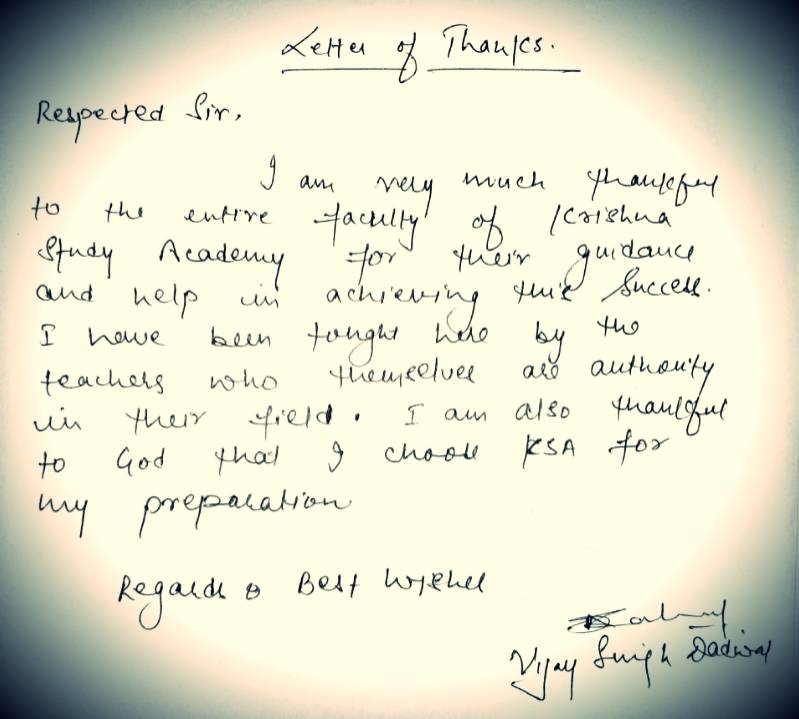 Letter of Thanks.
Respected Sir,
I am very much thankful
to the entire faculty of Krishna
Study Academy for their guidance
and help in achieving this success.
I have been tought here by the
teachers who themselves are authority
in their field. I am also thankful
to God that I choose KSA for
my preparation
Regards & Best Wishes
Vijay Singh Dadwal